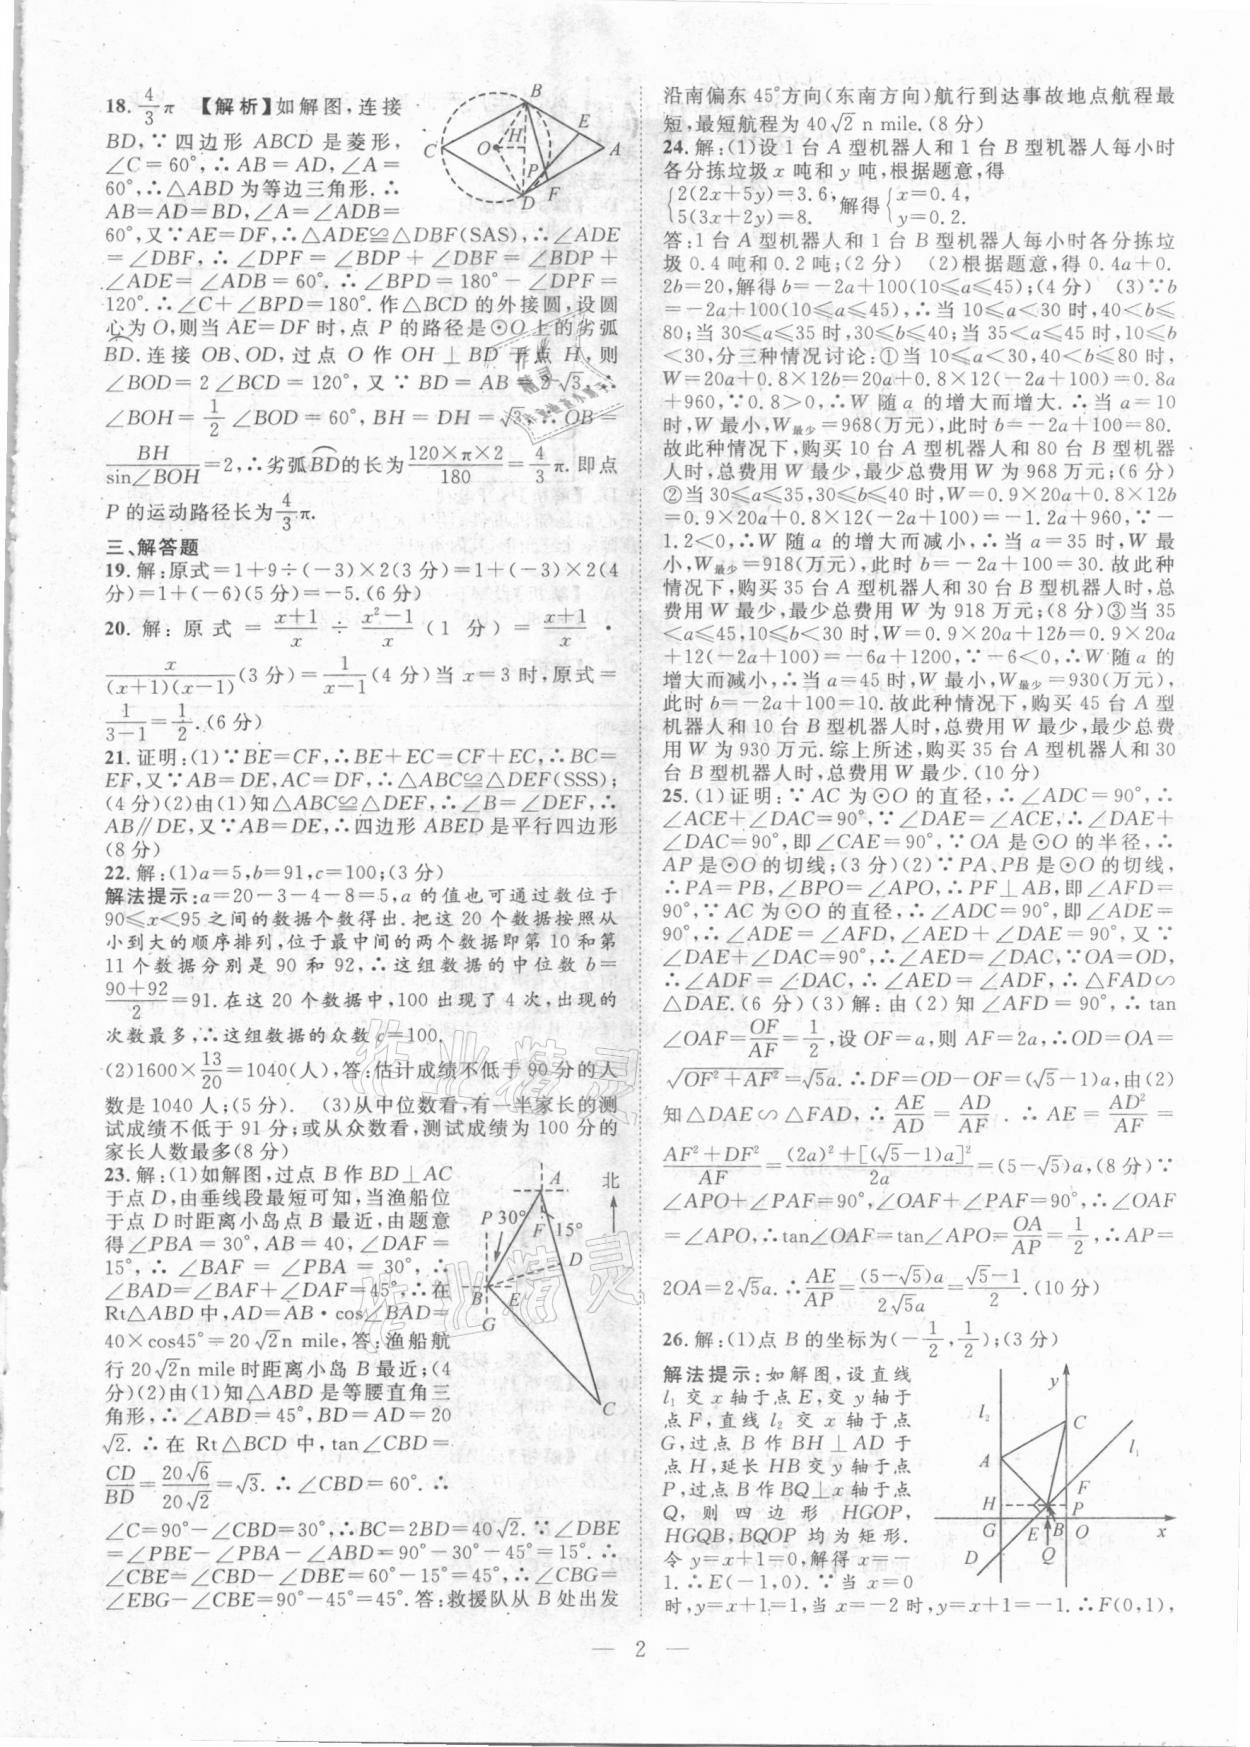 18. 4/3 π 【解析】如解图,连接
BD,∵四边形 ABCD 是菱形,
∠C=60°,∴AB=AD,∠A=
60°,∴△ABD 为等边三角形.∴
AB=AD=BD,∠A=∠ADB=
60°,又∵AE=DF,∴△ADE≌△DBF(SAS),∴∠ADE
=∠DBF,∴∠DPF=∠BDP+∠DBF=∠BDP+
∠ADE=∠ADB=60°.∴∠BPD=180°-∠DPF=
120°.∴∠C+∠BPD=180°.作△BCD 的外接圆,设圆
心为 O,则当 AE=DF 时,点 P 的路径是⊙O 上的劣弧
BD.连接 OB、OD,过点 O 作 OH⊥BD 于点 H,则
∠BOD=2∠BCD=120°,又∵BD=AB=2√3,∴
∠BOH=1/2∠BOD=60°,BH=DH=√3,∴OB=
BH/sin∠BOH=2,∴劣弧BD的长为(120×π×2)/180=4/3π.即点
P 的运动路径长为4/3π.
三、解答题
19. 解:原式=1+9÷(-3)×2(3分)=1+(-3)×2(4
分)=1+(-6)(5分)=-5.(6分)
20. 解:原式=(x+1)/x÷(x²-1)/x(1分)=(x+1)/x·
x/((x+1)(x-1))(3分)=1/(x-1)(4分)当 x=3 时,原式=
1/(3-1)=1/2.(6分)
21. 证明:(1)∵BE=CF,∴BE+EC=CF+EC,∴BC=
EF,又∵AB=DE,AC=DF,∴△ABC≌△DEF(SSS);
(4分)(2)由(1)知△ABC≌△DEF,∴∠B=∠DEF,∴
AB∥DE,又∵AB=DE,∴四边形 ABED 是平行四边形
(8分)
22. 解:(1)a=5,b=91,c=100;(3分)
解法提示:a=20-3-4-8=5,a 的值也可通过数位于
90≤x<95 之间的数据个数得出.把这 20 个数据按照从
小到大的顺序排列,位于最中间的两个数据即第 10 和第
11 个数据分别是 90 和 92,∴这组数据的中位数 b=
(90+92)/2=91.在这 20 个数据中,100 出现了 4 次,出现的
次数最多,∴这组数据的众数 c=100.
(2)1600×13/20=1040(人),答:估计成绩不低于 90 分的人
数是 1040 人;(5分) (3)从中位数看,有一半家长的测
试成绩不低于 91 分;或从众数看,测试成绩为 100 分的
家长人数最多(8分)
23. 解:(1)如解图,过点 B 作 BD⊥AC
于点 D,由垂线段最短可知,当渔船位
于点 D 时距离小岛点 B 最近,由题意
得∠PBA=30°,AB=40,∠DAF=
15°,∴∠BAF=∠PBA=30°,∴
∠BAD=∠BAF+∠DAF=45°,∴在
Rt△ABD 中,AD=AB·cos∠BAD=
40×cos45°=20√2n mile,答:渔船航
行 20√2n mile 时距离小岛 B 最近;(4
分)(2)由(1)知△ABD 是等腰直角三
角形,∴∠ABD=45°,BD=AD=20
√2.∴在 Rt△BCD 中,tan∠CBD=
CD/BD=20√6/20√2=√3.∴∠CBD=60°.∴
∠C=90°-∠CBD=30°,∴BC=2BD=40√2.∵∠DBE
=∠PBE-∠PBA-∠ABD=90°-30°-45°=15°.∴
∠CBE=∠CBD-∠DBE=60°-15°=45°,∴∠CBG=
∠EBG-∠CBE=90°-45°=45°.答:救援队从 B 处出发
B
E
H
C
O
A
P
D
F
A
北
P
30°
F
15°
D
B
E
G
C
沿南偏东 45°方向(东南方向)航行到达事故地点航程最
短,最短航程为 40√2 n mile.(8分)
24. 解:(1)设 1 台 A 型机器人和 1 台 B 型机器人每小时
各分拣垃圾 x 吨和 y 吨,根据题意,得
{2(2x+5y)=3.6, 5(3x+2y)=8. 解得{x=0.4, y=0.2.
答:1 台 A 型机器人和 1 台 B 型机器人每小时各分拣垃
圾 0.4 吨和 0.2 吨;(2分) (2)根据题意,得 0.4a+0.
2b=20,解得 b=-2a+100(10≤a≤45);(4分) (3)∵b
=-2a+100(10≤a≤45),∴当 10≤a<30 时,40<b≤
80;当 30≤a≤35 时,30≤b≤40;当 35<a≤45 时,10≤b
<30,分三种情况讨论:①当 10≤a<30,40<b≤80 时,
W=20a+0.8×12b=20a+0.8×12(-2a+100)=0.8a
+960,∵0.8>0,∴W 随 a 的增大而增大.∴当 a=10
时,W 最小,W最少=968(万元),此时 b=-2a+100=80.
故此种情况下,购买 10 台 A 型机器人和 80 台 B 型机器
人时,总费用 W 最少,最少总费用 W 为 968 万元;(6分)
②当 30≤a≤35,30≤b≤40 时,W=0.9×20a+0.8×12b
=0.9×20a+0.8×12(-2a+100)=-1.2a+960,∵-
1.2<0,∴W 随 a 的增大而减小,∴当 a=35 时,W 最
小,W最少=918(万元),此时 b=-2a+100=30.故此种
情况下,购买 35 台 A 型机器人和 30 台 B 型机器人时,总
费用 W 最少,最少总费用 W 为 918 万元;(8分)③当 35
<a≤45,10≤b<30 时,W=0.9×20a+12b=0.9×20a
+12(-2a+100)=-6a+1200,∵-6<0,∴W 随 a 的
增大而减小,∴当 a=45 时,W 最小,W最少=930(万元),
此时 b=-2a+100=10.故此种情况下,购买 45 台 A 型
机器人和 10 台 B 型机器人时,总费用 W 最少,最少总费
用 W 为 930 万元.综上所述,购买 35 台 A 型机器人和 30
台 B 型机器人时,总费用 W 最少.(10分)
25. (1)证明:∵AC 为⊙O 的直径,∴∠ADC=90°,∴
∠ACE+∠DAC=90°,∵∠DAE=∠ACE,∴∠DAE+
∠DAC=90°,即∠CAE=90°,∵OA 是⊙O 的半径,∴
AP 是⊙O 的切线;(3分)(2)∵PA、PB 是⊙O 的切线,
∴PA=PB,∠BPO=∠APO,∴PF⊥AB,即∠AFD=
90°,∵AC 为⊙O 的直径,∴∠ADC=90°,即∠ADE=
90°,∴∠ADE=∠AFD,∠AED+∠DAE=90°,又∵
∠DAE+∠DAC=90°,∴∠AED=∠DAC,∵OA=OD,
∴∠ADF=∠DAC,∴∠AED=∠ADF,∴△FAD∽
△DAE.(6分)(3)解:由(2)知∠AFD=90°,∴tan
∠OAF=OF/AF=1/2,设 OF=a,则 AF=2a,∴OD=OA=
√(OF²+AF²)=√5a.∴DF=OD-OF=(√5-1)a,由(2)
知△DAE∽△FAD,∴AE/AD=AD/AF.∴AE=AD²/AF=
(AF²+DF²)/AF=((2a)²+[(√5-1)a]²)/2a=(5-√5)a,(8分)∵
∠APO+∠PAF=90°,∠OAF+∠PAF=90°,∴∠OAF
=∠APO,∴tan∠OAF=tan∠APO=OA/AP=1/2,∴AP=
2OA=2√5a.∴AE/AP=(5-√5)a/2√5a=(√5-1)/2.(10分)
26. 解:(1)点 B 的坐标为(-1/2,1/2);(3分)
解法提示:如解图,设直线
l₁ 交 x 轴于点 E,交 y 轴于
点 F,直线 l₂ 交 x 轴于点
G,过点 B 作 BH⊥AD 于
点 H,延长 HB 交 y 轴于点
P,过点 B 作 BQ⊥x 轴于点
Q,则四边形 HGOP,
HGQB,BQOP 均为矩形.
令 y=x+1=0,解得 x=-
1.∴E(-1,0).∵当 x=0
时,y=x+1=1,当 x=-2 时,y=x+1=-1.∴F(0,1),
y
l₂
C
l₁
A
F
H
P
G
E
B
O
x
D
Q
— 2 —
作业精灵
作业精灵